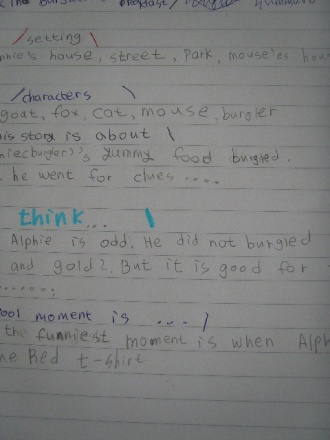 the burglar breakfast
/setting\
nnie's house, street, Park, mouse'es hous
/characters \
goat, fox, cat, mouse, burgler
his story is about \
yummy food burgled.
he went for clues ....
think... \
Alphie is odd. He did not burgled
and gold?. But it is good for
.......
ool moment is ... /
the funniest moment is when Alph
he Red t-shirt